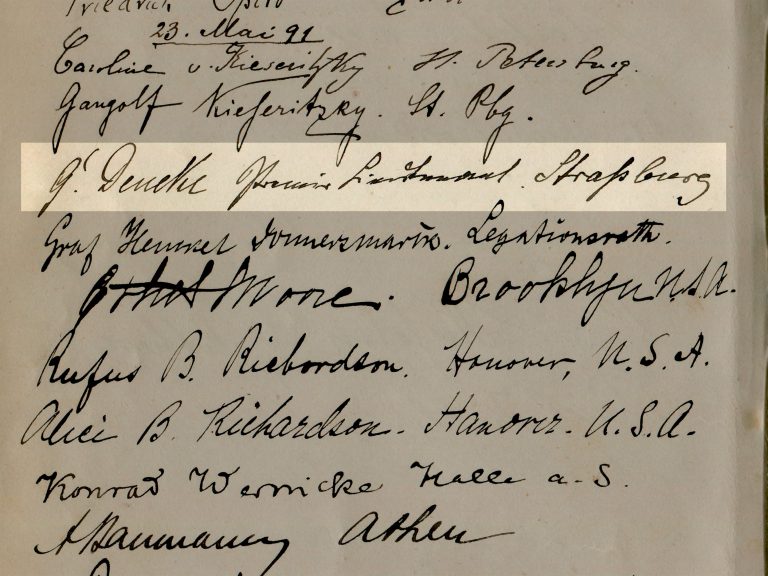 Friedrich Spiro
23. Mai 91
Caroline v. Kieseritzky St. Petersburg.
Gangolf Kieseritzky. St. Pbg.
G. Deneke Premier Lieutenant. Straßburg
Graf Henckel Donnersmarck. Legationsrath.
Ethel Moore. Brooklyn U.S.A.
Rufus B. Richardson. Hanover, U.S.A.
Alice B. Richardson. Hanover. U.S.A.
Konrad Wernicke Halle a.S.
A Baumann Athen